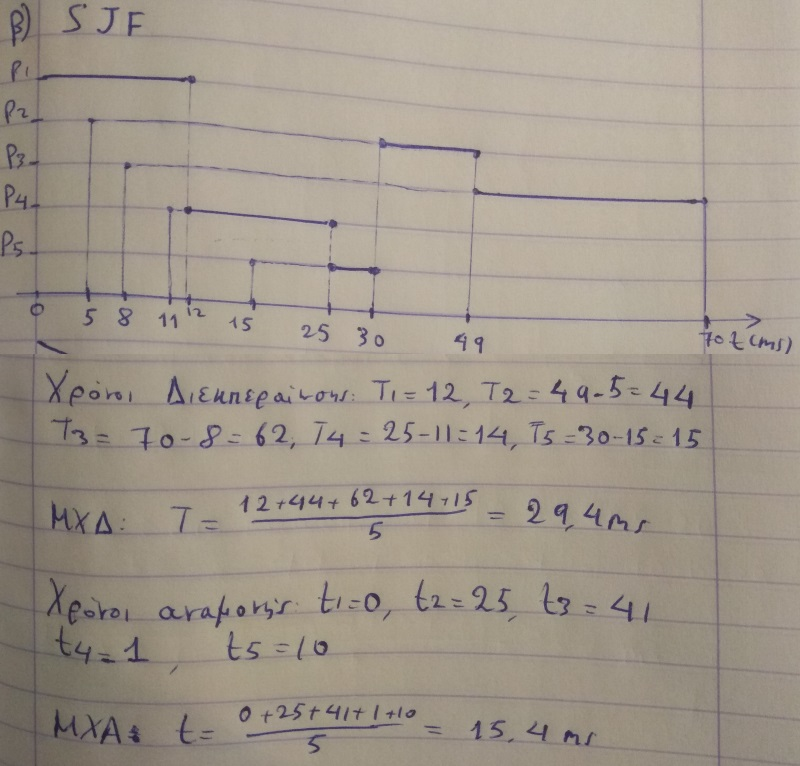 β) SJF
P1
P2
P3
P4
P5
0 5 8 11 12 15 25 30 49 70 t(ms)
Χρόνοι Διεκπεραίωσης: T1=12, T2=49-5=44
T3= 70-8=62, T4=25-11=14, T5=30-15=15
ΜΧΔ: T= 12+44+62+14+15 / 5 = 29,4ms
Χρόνοι αναμονής: t1=0, t2=25, t3=41
t4=1, t5=10
ΜΧΑ: t= 0+25+41+1+10 / 5 = 15.4 ms